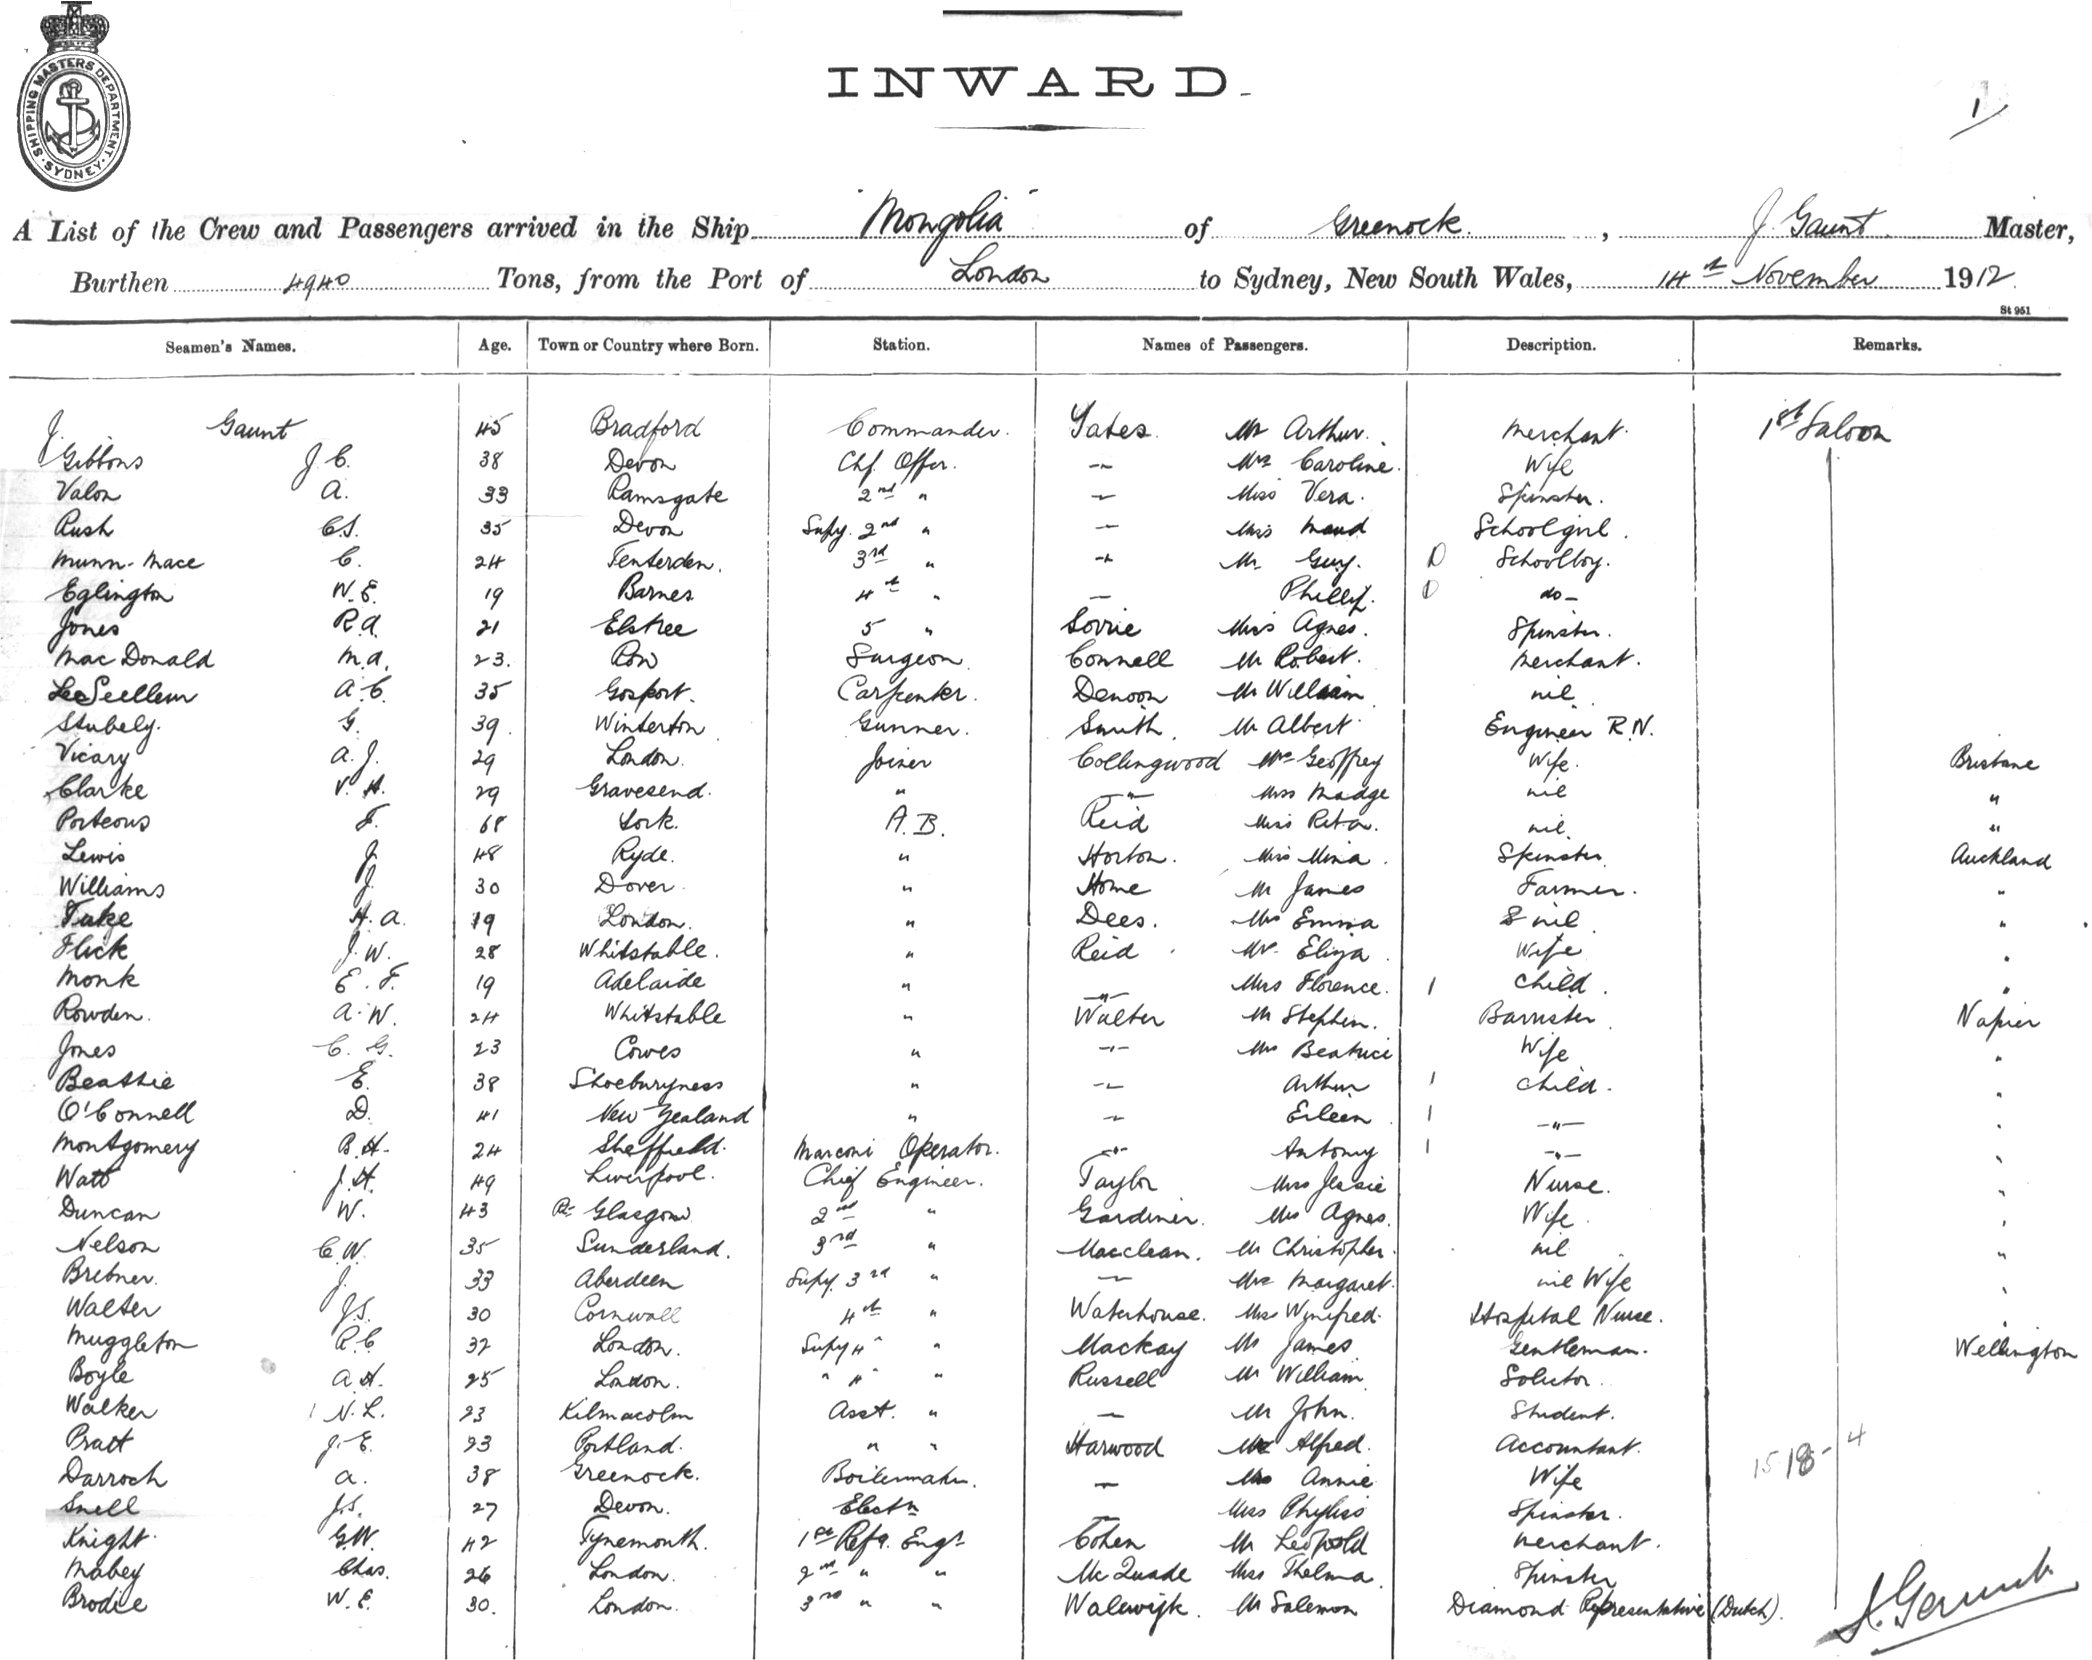 SHIPPING MASTERS DEPARTMENT · SYDNEY ·
INWARD.
1
A List of the Crew and Passengers arrived in the Ship "Mongolia" of Greenock, J. Gaunt Master,
Burthen 4940 Tons, from the Port of London to Sydney, New South Wales, 14th November 1912
St 951
Seamen's Names. Age. Town or Country where Born. Station. Names of Passengers. Description. Remarks.
J. Gaunt 45 Bradford Commander. Yates. Mr Arthur. Merchant. 1st Saloon
Gibbons J. C. 38 Devon Chf. Offr. — Mrs Caroline. Wife
Valon A. 33 Ramsgate 2nd " — Miss Vera. Spinster.
Rush C.S. 35 Devon Supy. 2nd " — Miss Maud Schoolgirl.
Munn-Mace C. 24 Tenterden. 3rd " — Mr Guy. Schoolboy.
Eglington W.E. 19 Barnes 4th " — Phillip. do —
Jones R.A. 21 Elstree 5 " Lorrie Miss Agnes. Spinster.
MacDonald M.A. 23. Row Surgeon Connell Mr Robert. Merchant.
LeSeelleur A.C. 35 Gosport. Carpenter. Denoon Mr William nil
Stubely. G. 39 Winterton Gunner. Smith. Mr Albert Engineer R.N.
Vicary A. J. 29 London. Joiner Collingwood Mrs Geoffrey Wife. Brisbane
Clarke V. H. 29 Gravesend. " —"— Miss Madge nil "
Porteous F. 68 York. A.B. Reid Miss Rita. nil. "
Lewis J. 48 Ryde. " Horton. Miss Mina. Spinster. Auckland
Williams J. 30 Dover. " Home Mr James Farmer. "
Tuke H. A. 19 London. " Dees. Mrs Emma nil "
Flick J. W. 28 Whitstable. " Reid Mrs Eliza Wife "
Monk E. F. 19 Adelaide " —"— Miss Florence. 1 Child. "
Rowden. A. W. 24 Whitstable " Walter Mr Stephen. Barrister. Napier
Jones C. G. 23 Cowes " —"— Mrs Beatrice Wife "
Beattie E. 38 Shoeburyness " — Arthur 1 Child. "
O'Connell D. 41 New Zealand " — Eileen 1 —"— "
Montgomery B.H. 24 Sheffield. Marconi Operator. —"— Antony 1 —"— "
Watt J.H. 49 Liverpool. Chief Engineer. Taylor Miss Jessie Nurse. "
Duncan W. 43 Glasgow 2nd " Gardiner. Mrs Agnes. Wife. "
Nelson C.W. 35 Sunderland. 3rd " Macclean. Mr Christopher. nil "
Brebner. J. 33 Aberdeen Supy. 3rd " — Mrs Margaret. nil Wife "
Walter J.S. 30 Cornwall 4th " Waterhouse. Miss Wynifred. Hospital Nurse. "
Muggleton R.C. 32 London. Supy 4 " Mackay Mr James Gentleman. Wellington
Boyle A.H. 25 London. " 4 " Russell Mr William Solicitor.
Walker N.L. 23 Kilmacolm Asst. " — Mr John. Student.
Pratt J.E. 23 Portland. " " Harwood Mr Alfred. Accountant. 15 18 - 4
Darroch A. 38 Greenock. Boilermaker. — Mrs Annie Wife
Snell J.S. 27 Devon. Electn — Miss Phyliss Spinster.
Knight. G.W. 42 Tynemouth. 1st Refg. Engr. Cohen Mr Leopold Merchant.
Mabey Chas. 26 London. 2nd " " McQuade Miss Thelma Spinster
Brodie W.E. 30. London. 3rd " " Walewijk. Mr Salemon Diamond Representative (Dutch).
J. Gaunt